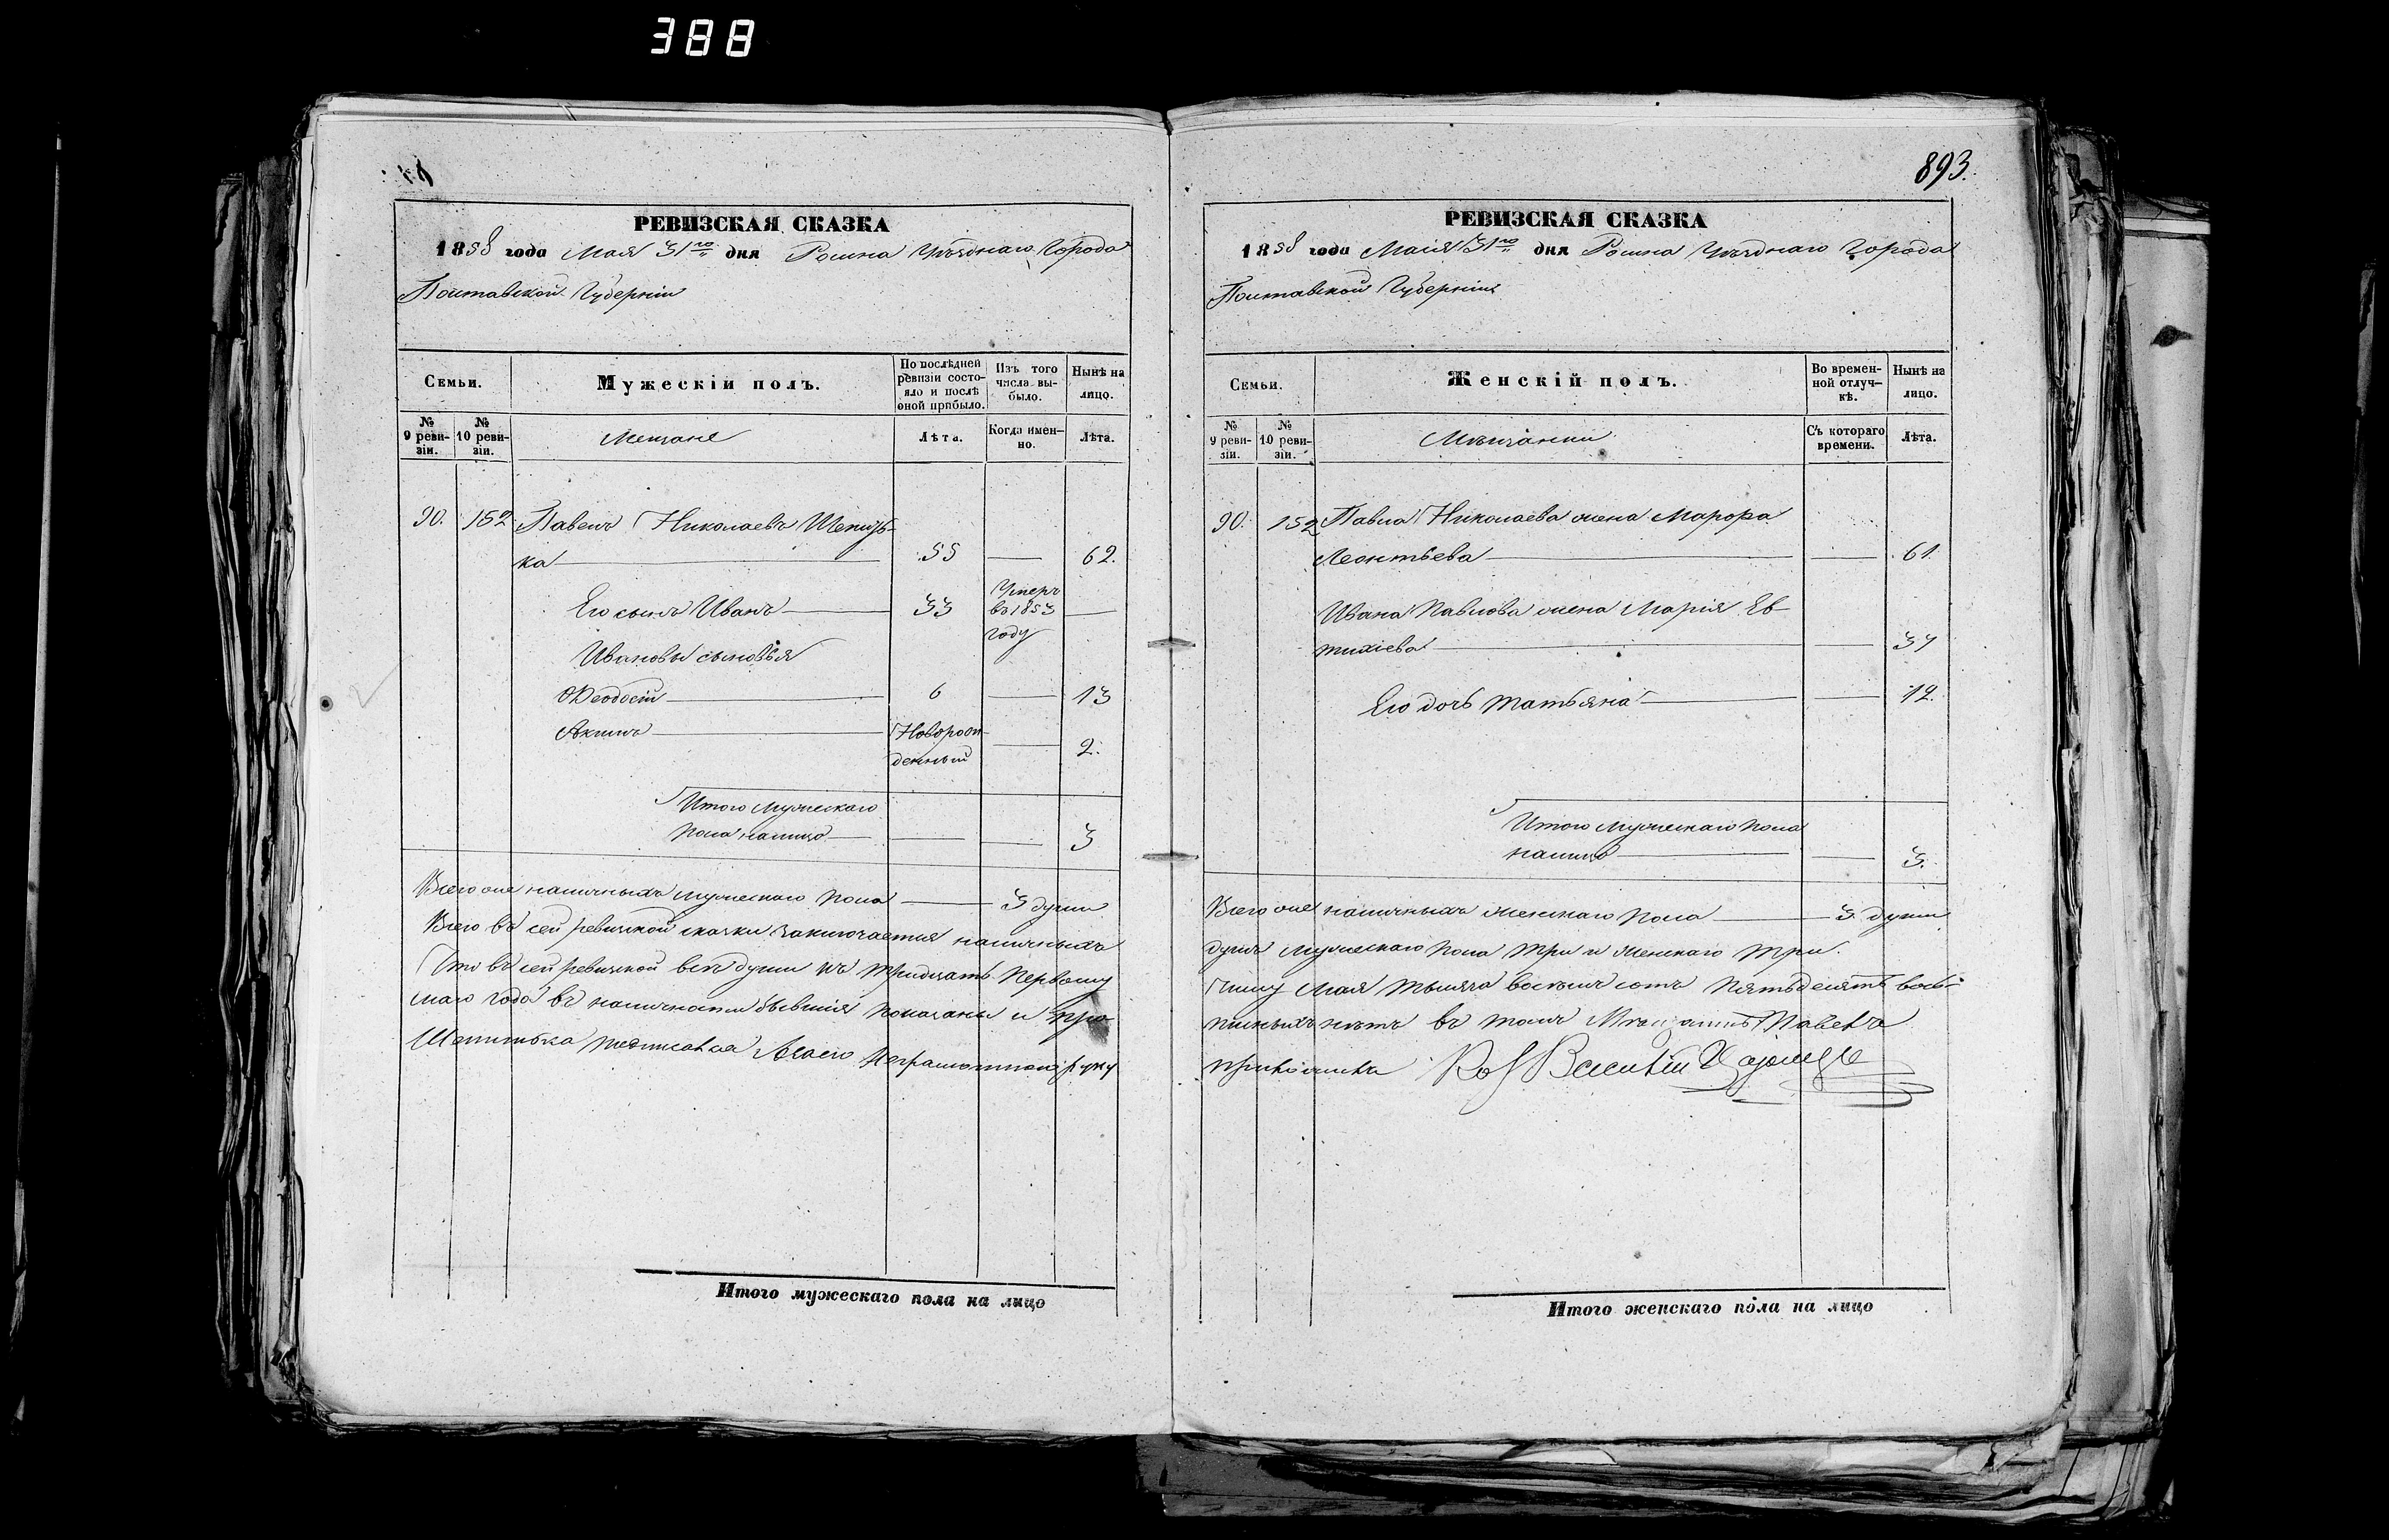 388
893.
РЕВИЗСКАЯ СКАЗКА
1858 года Мая 31го дня Ромна Уѣзднаго Города
Полтавской Губерніи
Семьи.
Мужескій полъ.
По послѣдней ревизіи состояло и послѣ оной прибыло.
Изъ того числа выбыло.
Нынѣ на лицо.
№ 9 ревизіи.
№ 10 ревизіи.
Мещане
Лѣта.
Когда именно.
Лѣта.
90. 152 Павелъ Николаевъ
ка 55 — 62.
Его сынъ Иванъ 33 Умеръ въ 1853 году —
Ивановы сыновья
Ѳеодосій 6 — 13
Акимъ Новорожденный — 2.
Итого мужескаго
пола налицо — — 3
Всего же наличныхъ мужескаго пола — 3 души
Всего въ сей ревизской сказки заключается наличныхъ
Что въ сей ревизской всѣ души къ тридцать первому
маго года въ наличности бывшія показаны и про
подписался неграмотной руку
РЕВИЗСКАЯ СКАЗКА
1858 года Маія 31го дня Ромна Уѣзднаго Города
Полтавской Губерніи
Семьи.
Женскій полъ.
Во временной отлучкѣ.
Нынѣ на лицо.
№ 9 ревизіи.
№ 10 ревизіи.
Мѣщанки
Съ котораго времени.
Лѣта.
90. 152 Павла Николаева жена Марфа
Леонтьева — 61.
Ивана Павлова жена Марія Ев-
тихіева — 37
Его дочь Татьяна — 12.
Итого мужескаго пола
налицо — 3.
Всего же наличныхъ женскаго пола — 3. души
душъ мужескаго пола три и женскаго три.
числу Мая тысяча восемь сотъ пятьдесятъ вось-
писныхъ нѣтъ въ томъ Павелъ
Итого мужескаго пола на лицо
Итого женскаго пола на лицо